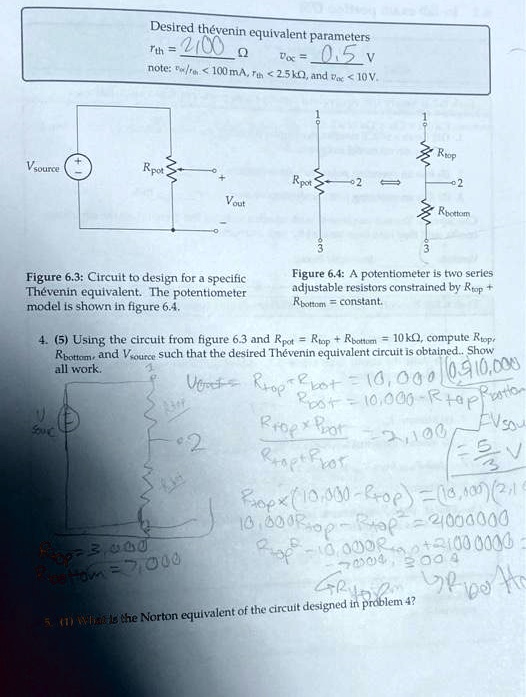 Desired thévenin equivalent parameters
rth = 2,100 Ω voc = 0.5 V
note: voc/rth < 100 mA, rth < 2.5 kΩ, and voc < 10 V.
Vsource
+
Rpot
+
Vout
−
1
Rpot
2
3
1
Rtop
2
Rbottom
3
Figure 6.3: Circuit to design for a specific
Thévenin equivalent. The potentiometer
model is shown in figure 6.4.
Figure 6.4: A potentiometer is two series
adjustable resistors constrained by Rtop +
Rbottom = constant.
4. (5) Using the circuit from figure 6.3 and Rpot = Rtop + Rbottom = 10 kΩ, compute Rtop,
Rbottom, and Vsource such that the desired Thévenin equivalent circuit is obtained.. Show
all work.
1
2
Rtop + Rbot = 10,000
Rbot = 10,000 - Rtop
Rtop × Rbot = 2,100
Rtop + Rbot
= 5/3 V
Rtop × (10,000 - Rtop) = (10,000)(2,1
10,000Rtop - Rtop² = 21000000
Rtop = 3,000
Rbottom = 7,000
5. (1) What is the Norton equivalent of the circuit designed in problem 4?